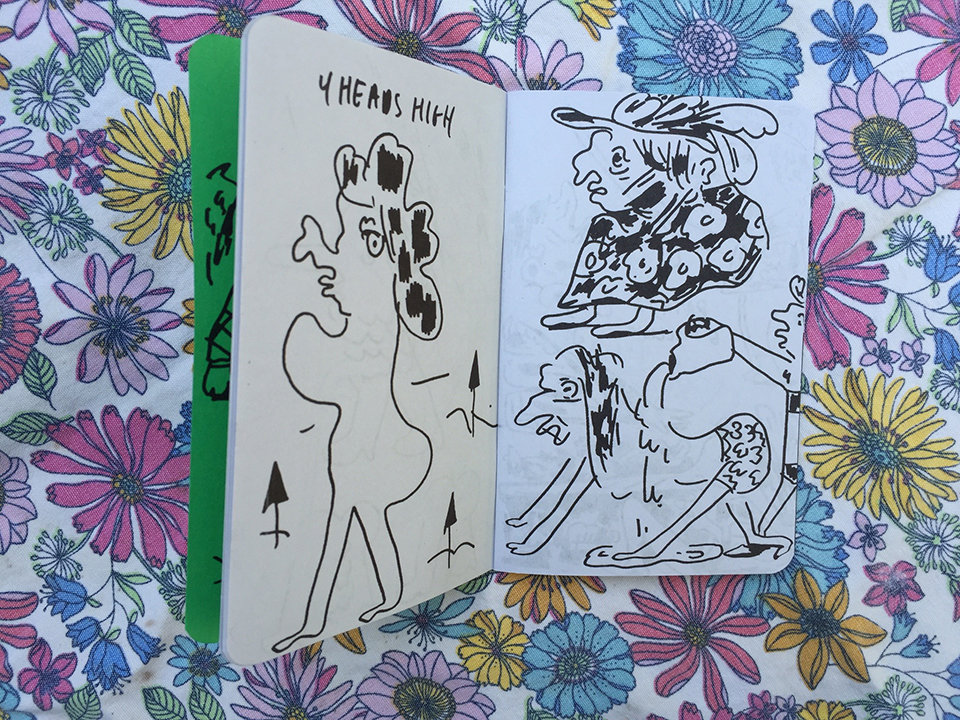 4 HEADS HIGH